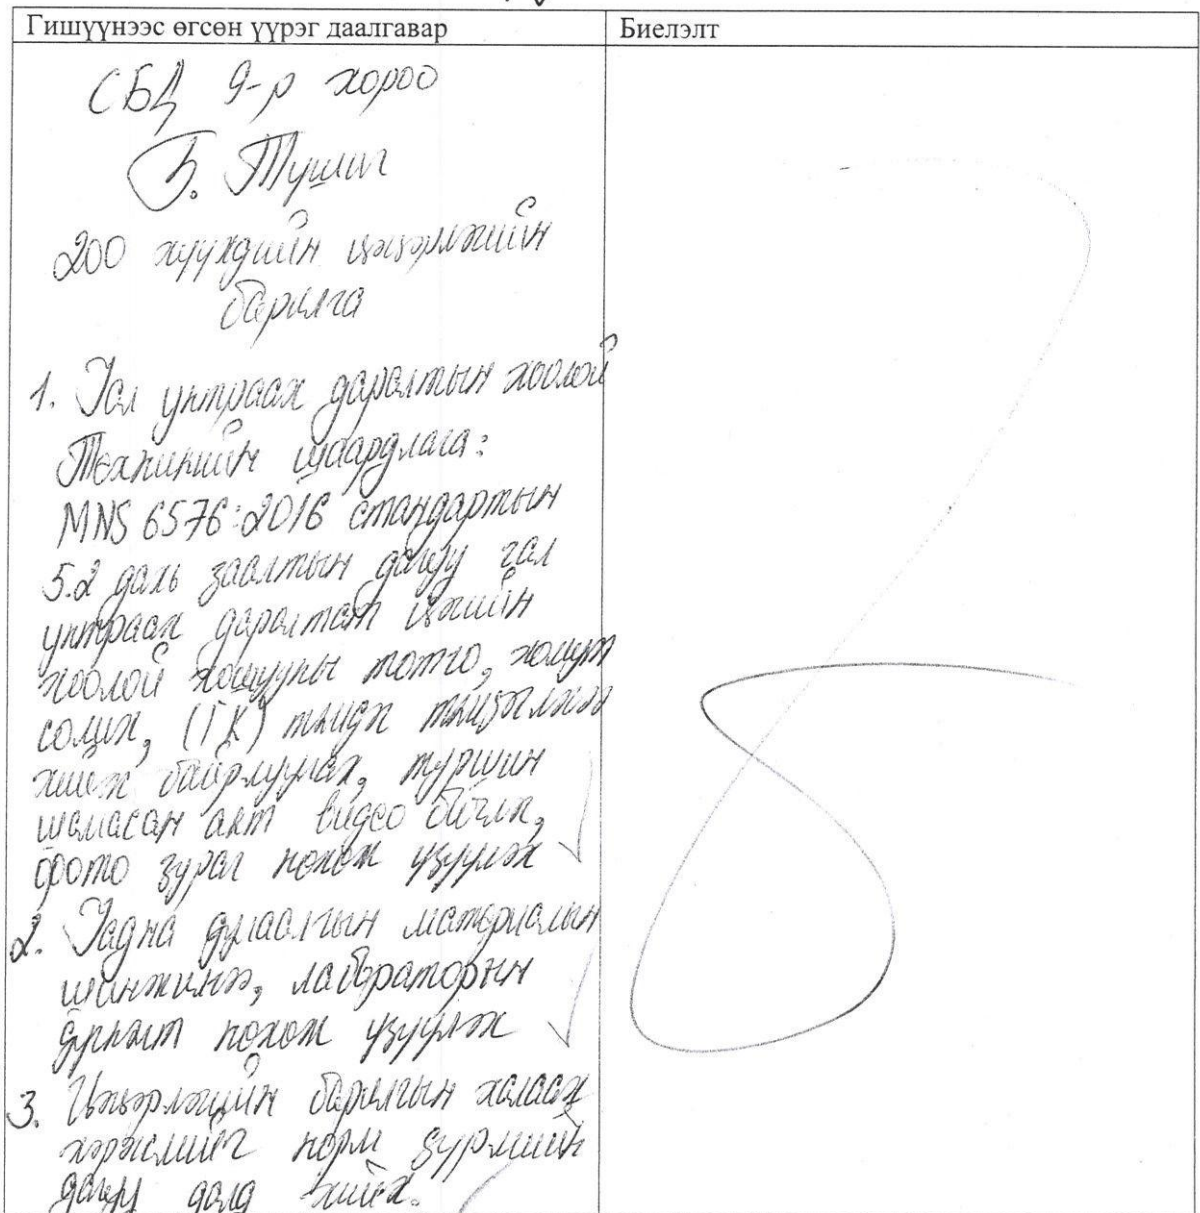 Гишүүнээс өгсөн үүрэг даалгавар
Биелэлт
СБД 9-р хороо
Б. Түшиг
200 хүүхдийн цэцэрлэгийн
барилга
1. Гал унтраах даралтын хоолой
Техникийн шаардлага:
MNS 6576:2016 стандартын
5.2 дахь заалтын дагуу гал
унтраах даралтат усжийн
хоолой хошууны тотго, хомут
солих, (ГК) тэмдэглэгээ
хийж байрлуулах, туршин
шалгасан акт видео бичлэг,
фото зураг нөхөж үзүүлэх
2. Гадна дулаалгын материалын
шинжилгээ, лабораторын
дүгнэлт нөхөж үзүүлэх
3. Цэцэрлэгийн барилгын халаах
хэрэгслийг норм дүрмийн
дагуу далд хийх.